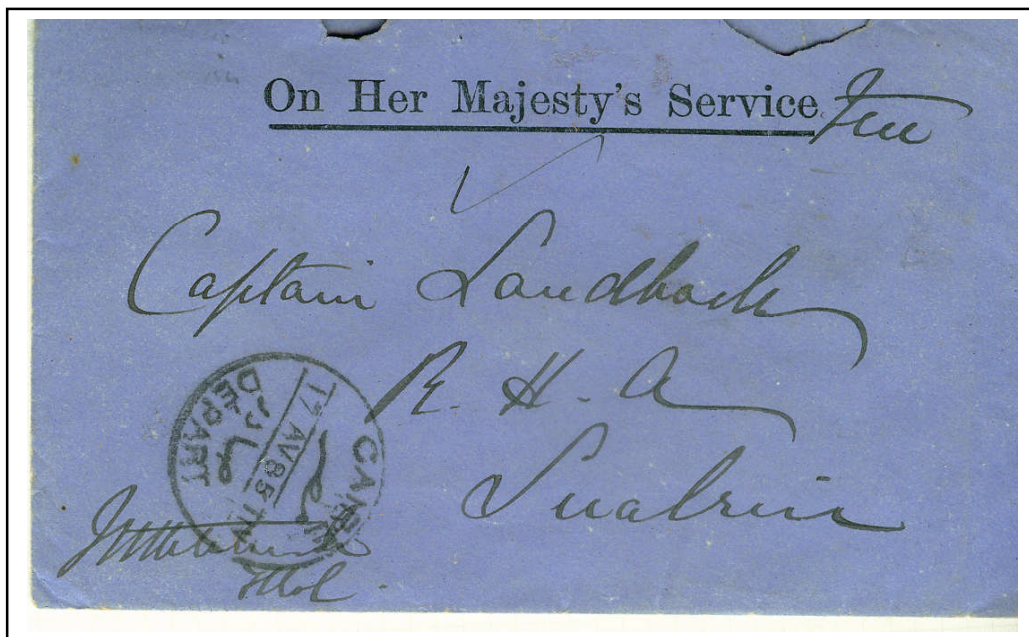 On Her Majesty's Service
Free
Captain Sandbach
R. H. A
Suakin
CAIRE
17 AV 85 T
DEPART